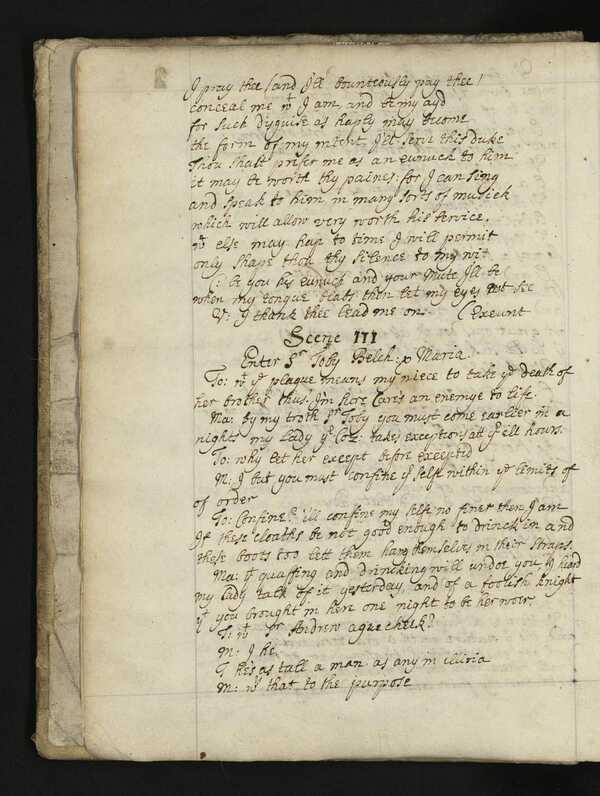 I pray thee (and I'll bounteously pay thee)
conceal me wt I am, and be my ayd
for such disguise as haply may become
the form of my intent, I'll serve this duke
Thou shalt prefer me as an eunuch to him
it may be worth thy paines: for I can sing
and speak to him in many sorts of musick
which will allow very worth his service,
wt else may hap to time I will permit
only shape thou thy silence to my wit
C: be you his eunuch and your Mute I'll be
when my tongue blabs then let my eyes not see
V: I thank thee lead me on. (Exeunt
Scene III
Enter Sr Toby Belch: & Maria
To: wt ye plague means my niece to take ye death of
her brother thus. I'm sure Care's an enemye to life.
Ma: by my troth Sr Toby you must come earlier in a
nights my Lady yr Coz: takes exceptions att yr ill hours.
To: why let her except before excepted
M: I but you must confine yr self within ye limits of
of order
To: Confine? i'll confine my selfe no finer then I am
If these cloaths be not good enough to drinck in and
these boots too lett them hang themselves in their straps.
Ma: yt quaffing and drincking will undoe you, I heard
my Lady talk of it yesterday, and of a foolish knight
yt you brought in here one night to be her woer.
T: wt Sr Andrew ague cheek?
M: I he
T he's as tall a man as any in illiria
M: wts that to the purpose